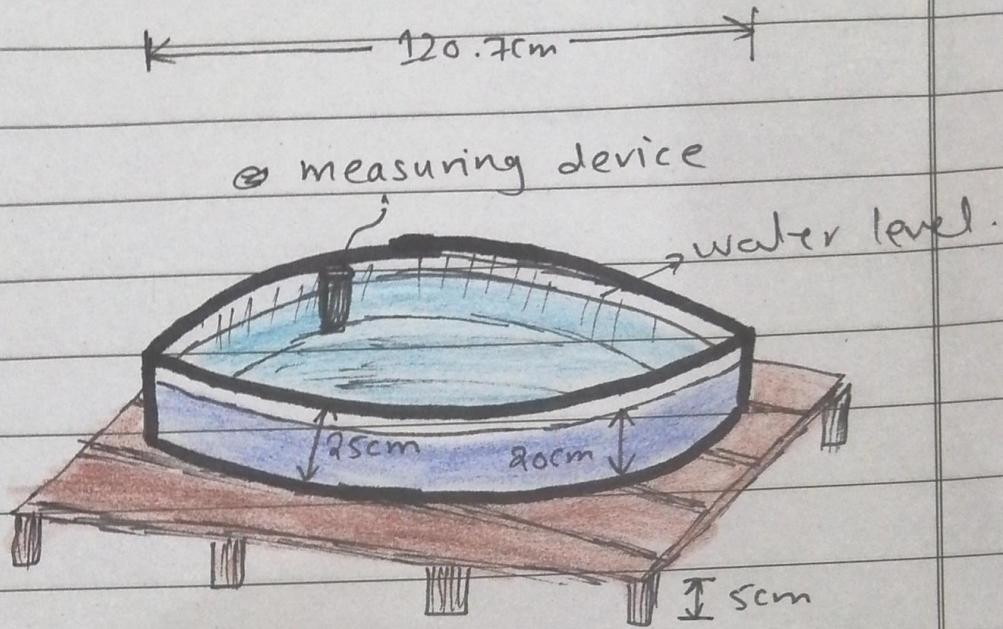 120.7cm
measuring device
water level.
25cm
20cm
5cm